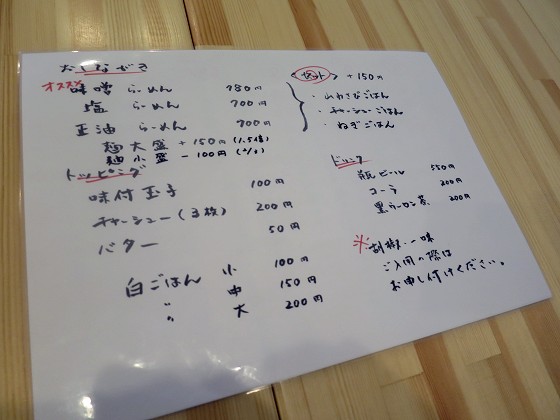 おしながき
オススメ
味噌 らーめん 780円
塩 らーめん 700円
正油 らーめん 700円
麺大盛 +150円 (1.5倍)
麺小盛 -100円 (1/2)
トッピング
味付玉子 100円
チャーシュー(3枚) 200円
バター 50円
白ごはん 小 100円
〃 中 150円
〃 大 200円
セット +150円
・山わさびごはん
・チャーシューごはん
・ねぎごはん
ドリンク
瓶ビール 550円
コーラ 200円
黒ウーロン茶 200円
※胡椒・一味
ご入用の際は
お申し付けください。